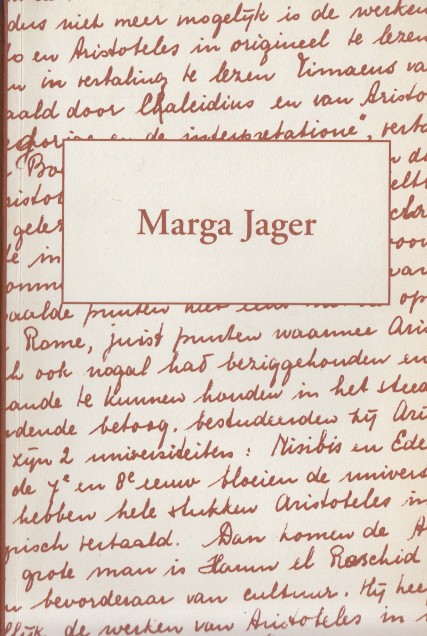 dus niet meer mogelijk is de werken
o en Aristoteles in origineel te lezen
n in vertaling te lezen Timaeus va
aald door Chaleidius en van Aristo
en de interpretatione", verta
Bo
d
ristot
elt
gelez
de in
voor
omm
van
Marga Jager
paalde punten op
Rome, juist punten waarmee Aris
h ook nogal had beziggehouden en
aande te kunnen houden in het steed
dende betoog, bestudeerden zij Aris
zijn 2 universiteiten: Nisibis en Ede
de 7e en 8e eeuw bloeien de univers
hebben hele stukken Aristoteles in
gisch vertaald. Dan komen de A
grote man is Harun el Raschid
n bevorderaar van cultuur. Hij hee
llijk de werken van Aristoteles in